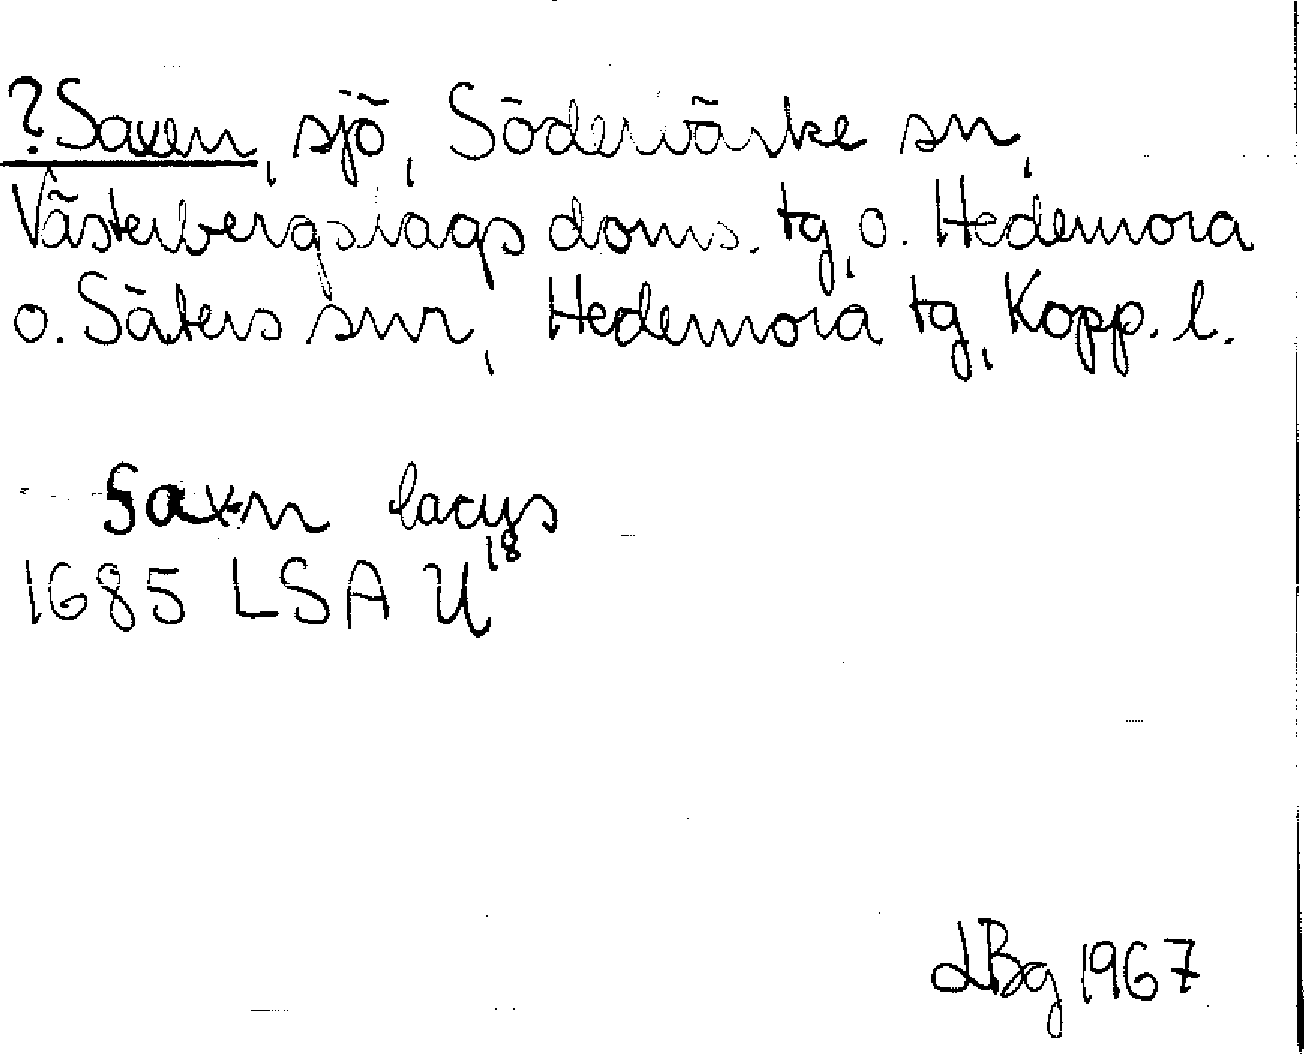 ?Saxen, sjö, Söderbärke sn,
Västerbergslags doms. tg, o. Hedemora
o. Säters snr, Hedemora tg, Kopp. l.
Saxn lacus
1685 LSA U18
LBg 1967